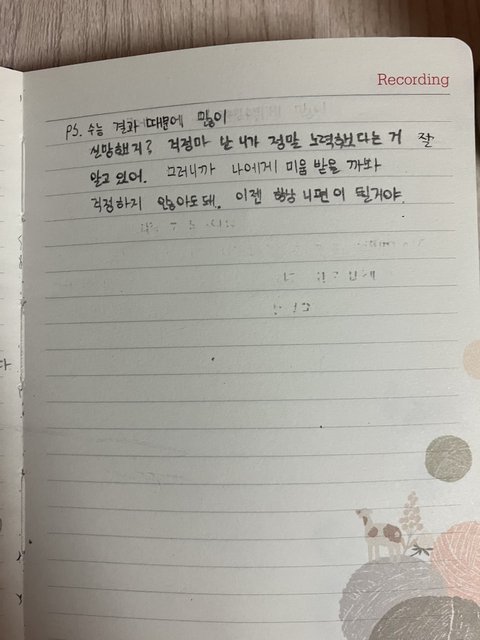 Recording
PS. 수능 결과 때문에 많이
실망했지? 걱정마 난 니가 정말 노력했다는 거 잘
알고 있어. 그러니까 나에게 미움 받을 까봐
걱정하지 않아도 돼. 이젠 항상 니편이 될거야.
다